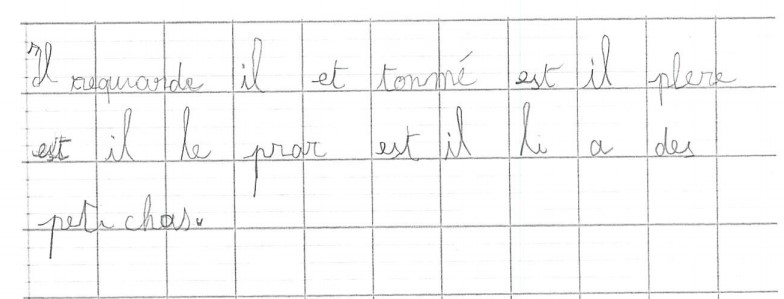 Il requarde il et tonmé est il plere
est il le prar est il li a des
peti chas.